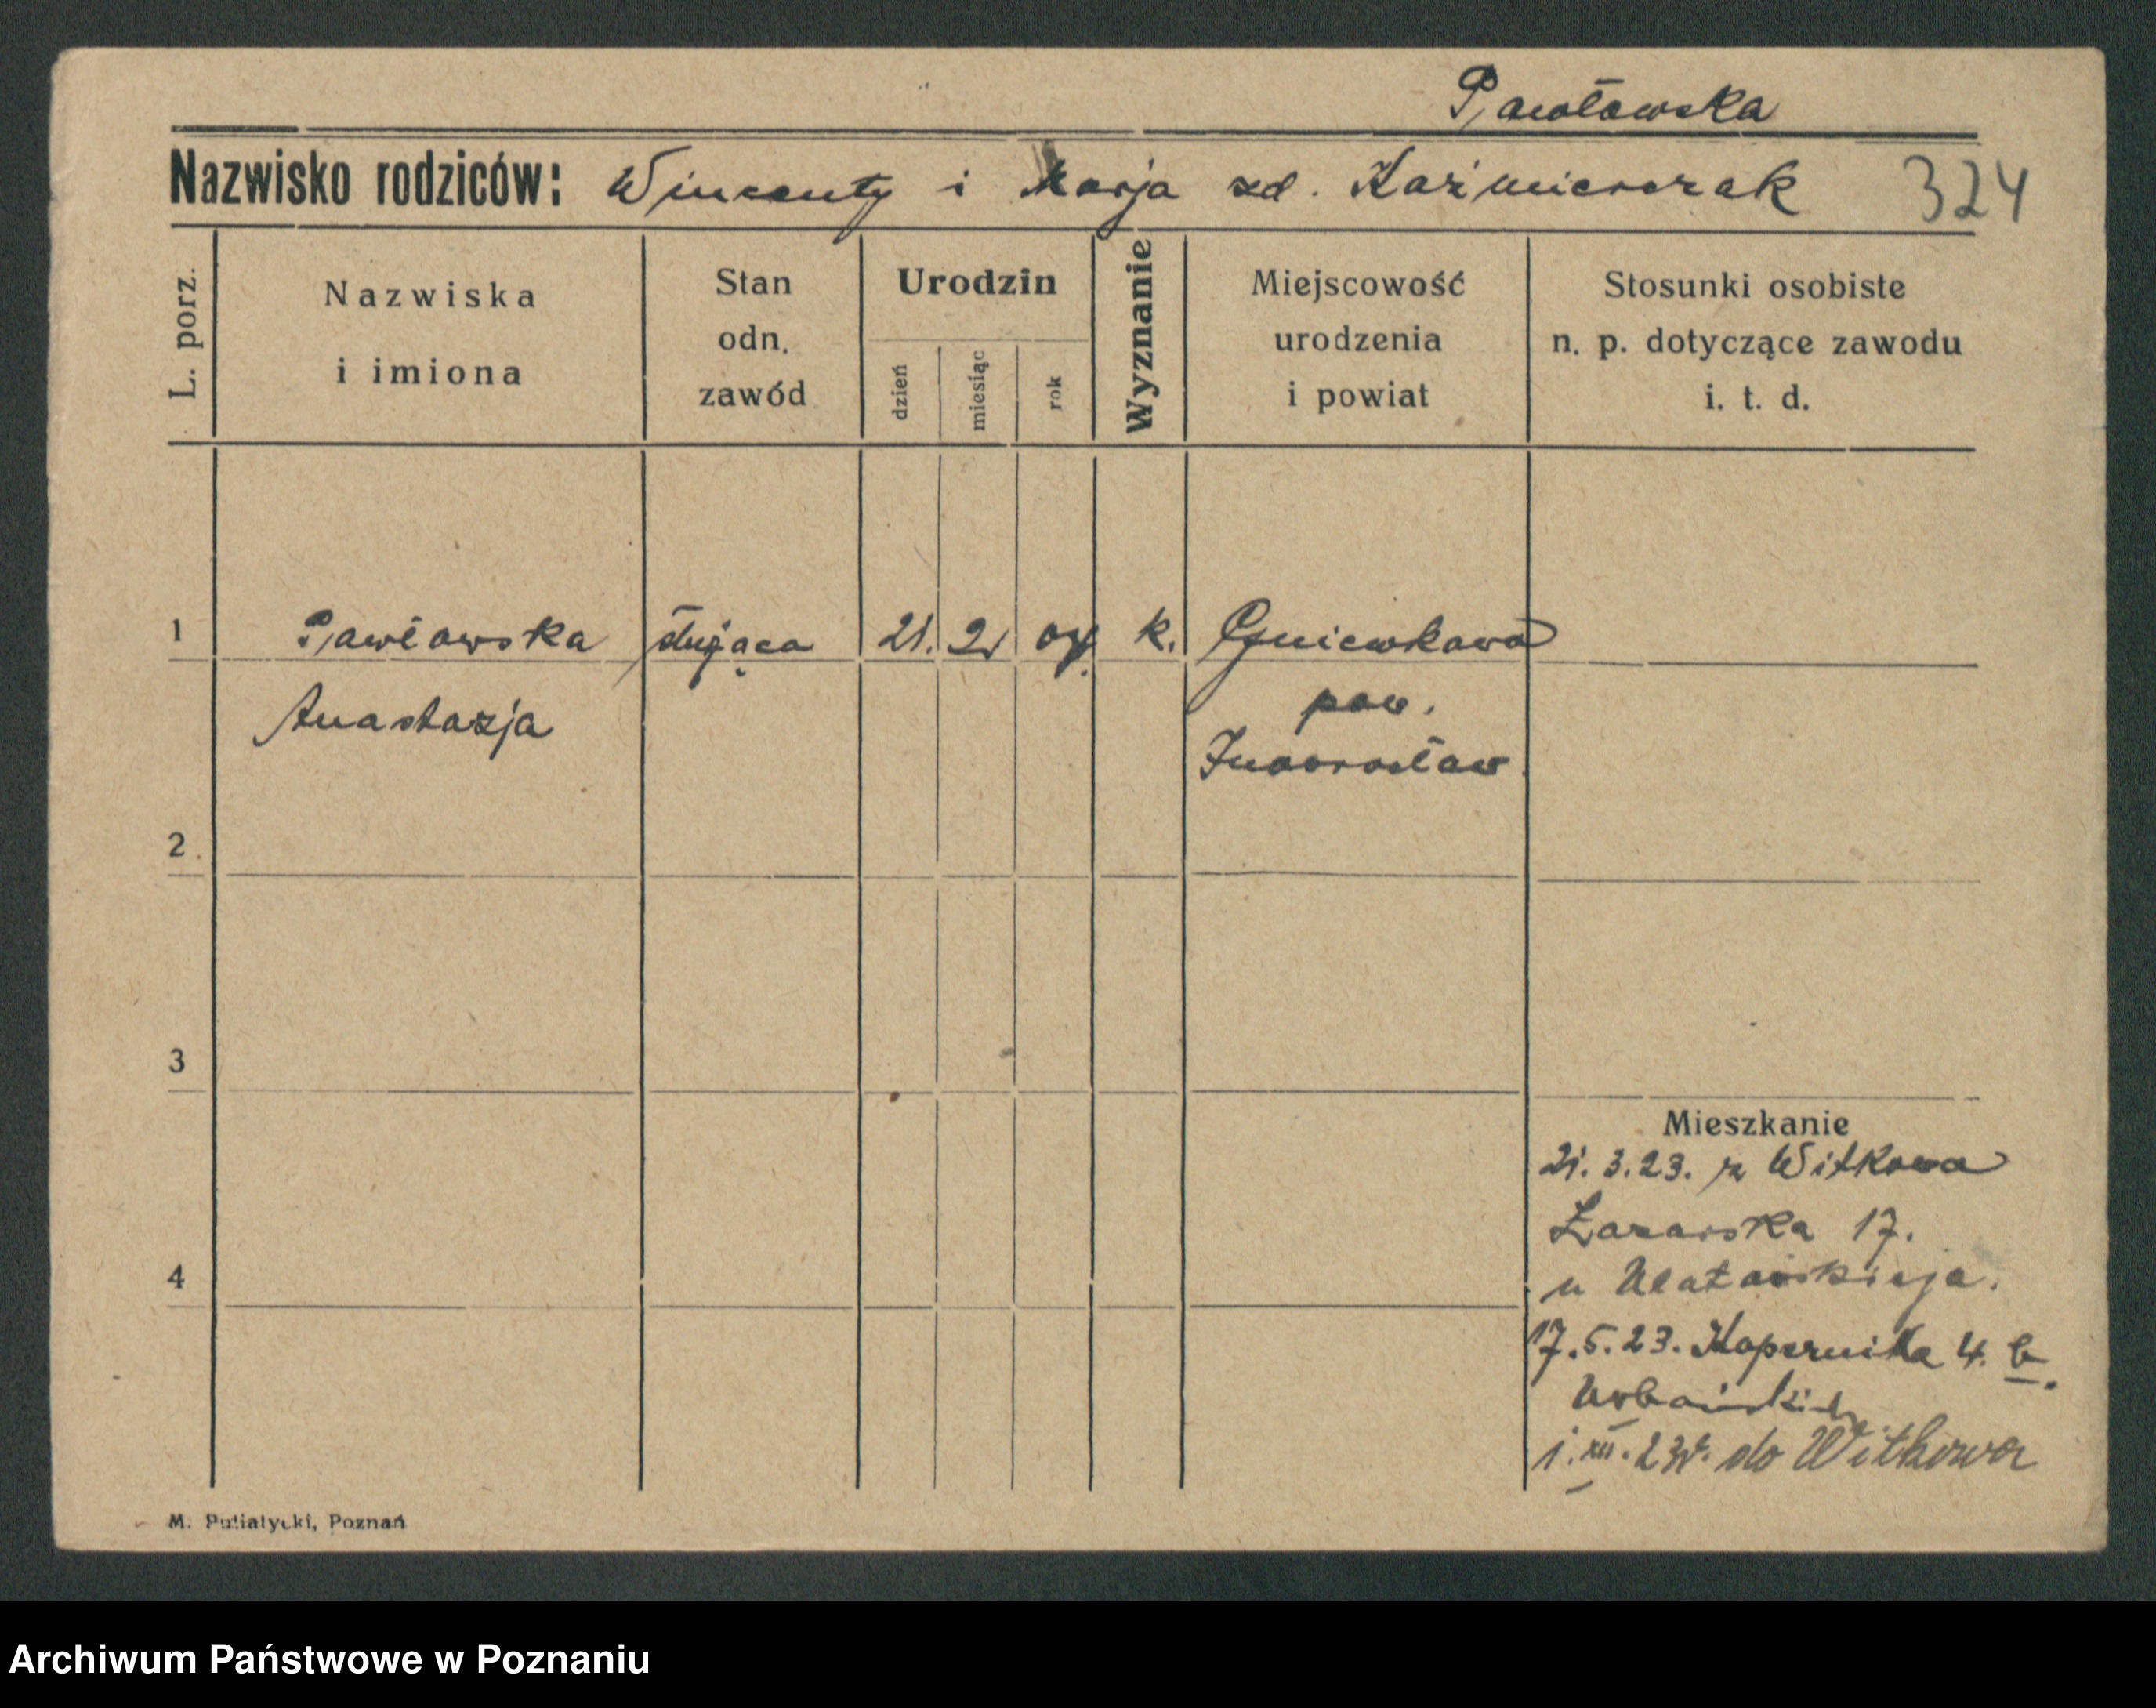 Pawłowska
Nazwisko rodziców: Wincenty i Marja zd. Kaźmierczak 324
L. porz.
Nazwiska i imiona
Stan odn. zawód
Urodzin
dzień
miesiąc
rok
Wyznanie
Miejscowość urodzenia i powiat
Stosunki osobiste n. p. dotyczące zawodu i. t. d.
1 Pawłowska służąca 21. 2 k. Gniewkowo
Anastazja pow.
Inowrocław
2
3
4
Mieszkanie
21. 3. 23. z Witkowa
Łazarska 17.
u
17. 5. 23. Kopernika 4. b.
Urbański
1. XII. 23r. do Witkowa
M. Putiatycki, Poznań
Archiwum Państwowe w Poznaniu